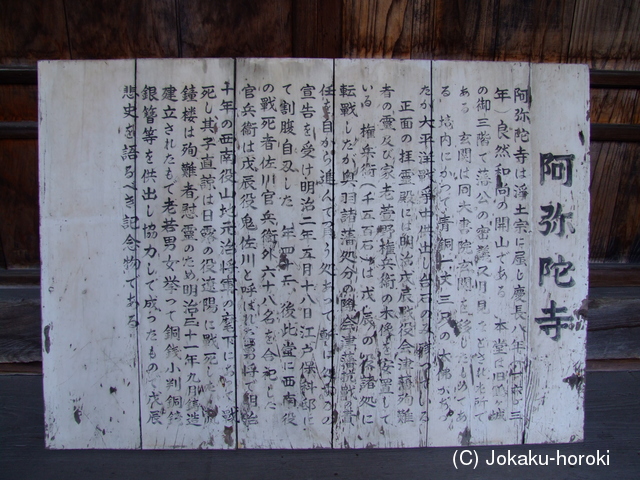 阿弥陀寺
阿弥陀寺は浄土宗に属し慶長八年(一六〇三
年)良然和尚の開山である 本堂は旧
の御三階で藩公の密議
ある 玄関は同大書院玄関を移したもので
る 境内にかつて青銅一丈三尺の大佛があっ
たが太平洋戦争中供出し台石のみ残っている
正面の拝霊殿には明治戊辰戦役会津藩殉難
者の霊及び家老萱野権兵衛の木像を安置して
いる 権兵衛(千五百石)は戊辰の落城に
転戦したが奥羽諸藩処分の際会津藩
任を自から進んで
宣告を受け明治二年五月十八日江戸保科邸に
て割腹自刃した 後此堂に西南役
の戦死者佐川官兵衛外六十八名を合
官兵衛は戊辰役鬼佐川と呼ばれ 明治
十年の西南役山地元治将軍の麾下に
死し其子直諒は日露の役遼陽に戦死
鐘楼は殉難者慰霊のため明治三十一年九月
建立されたもで老若男女挙って銅銭小判銅鏡
銀簪等を供出し協力して成ったもので戊辰
悲史を語るべき記念物である
(C) Jokaku-horoki